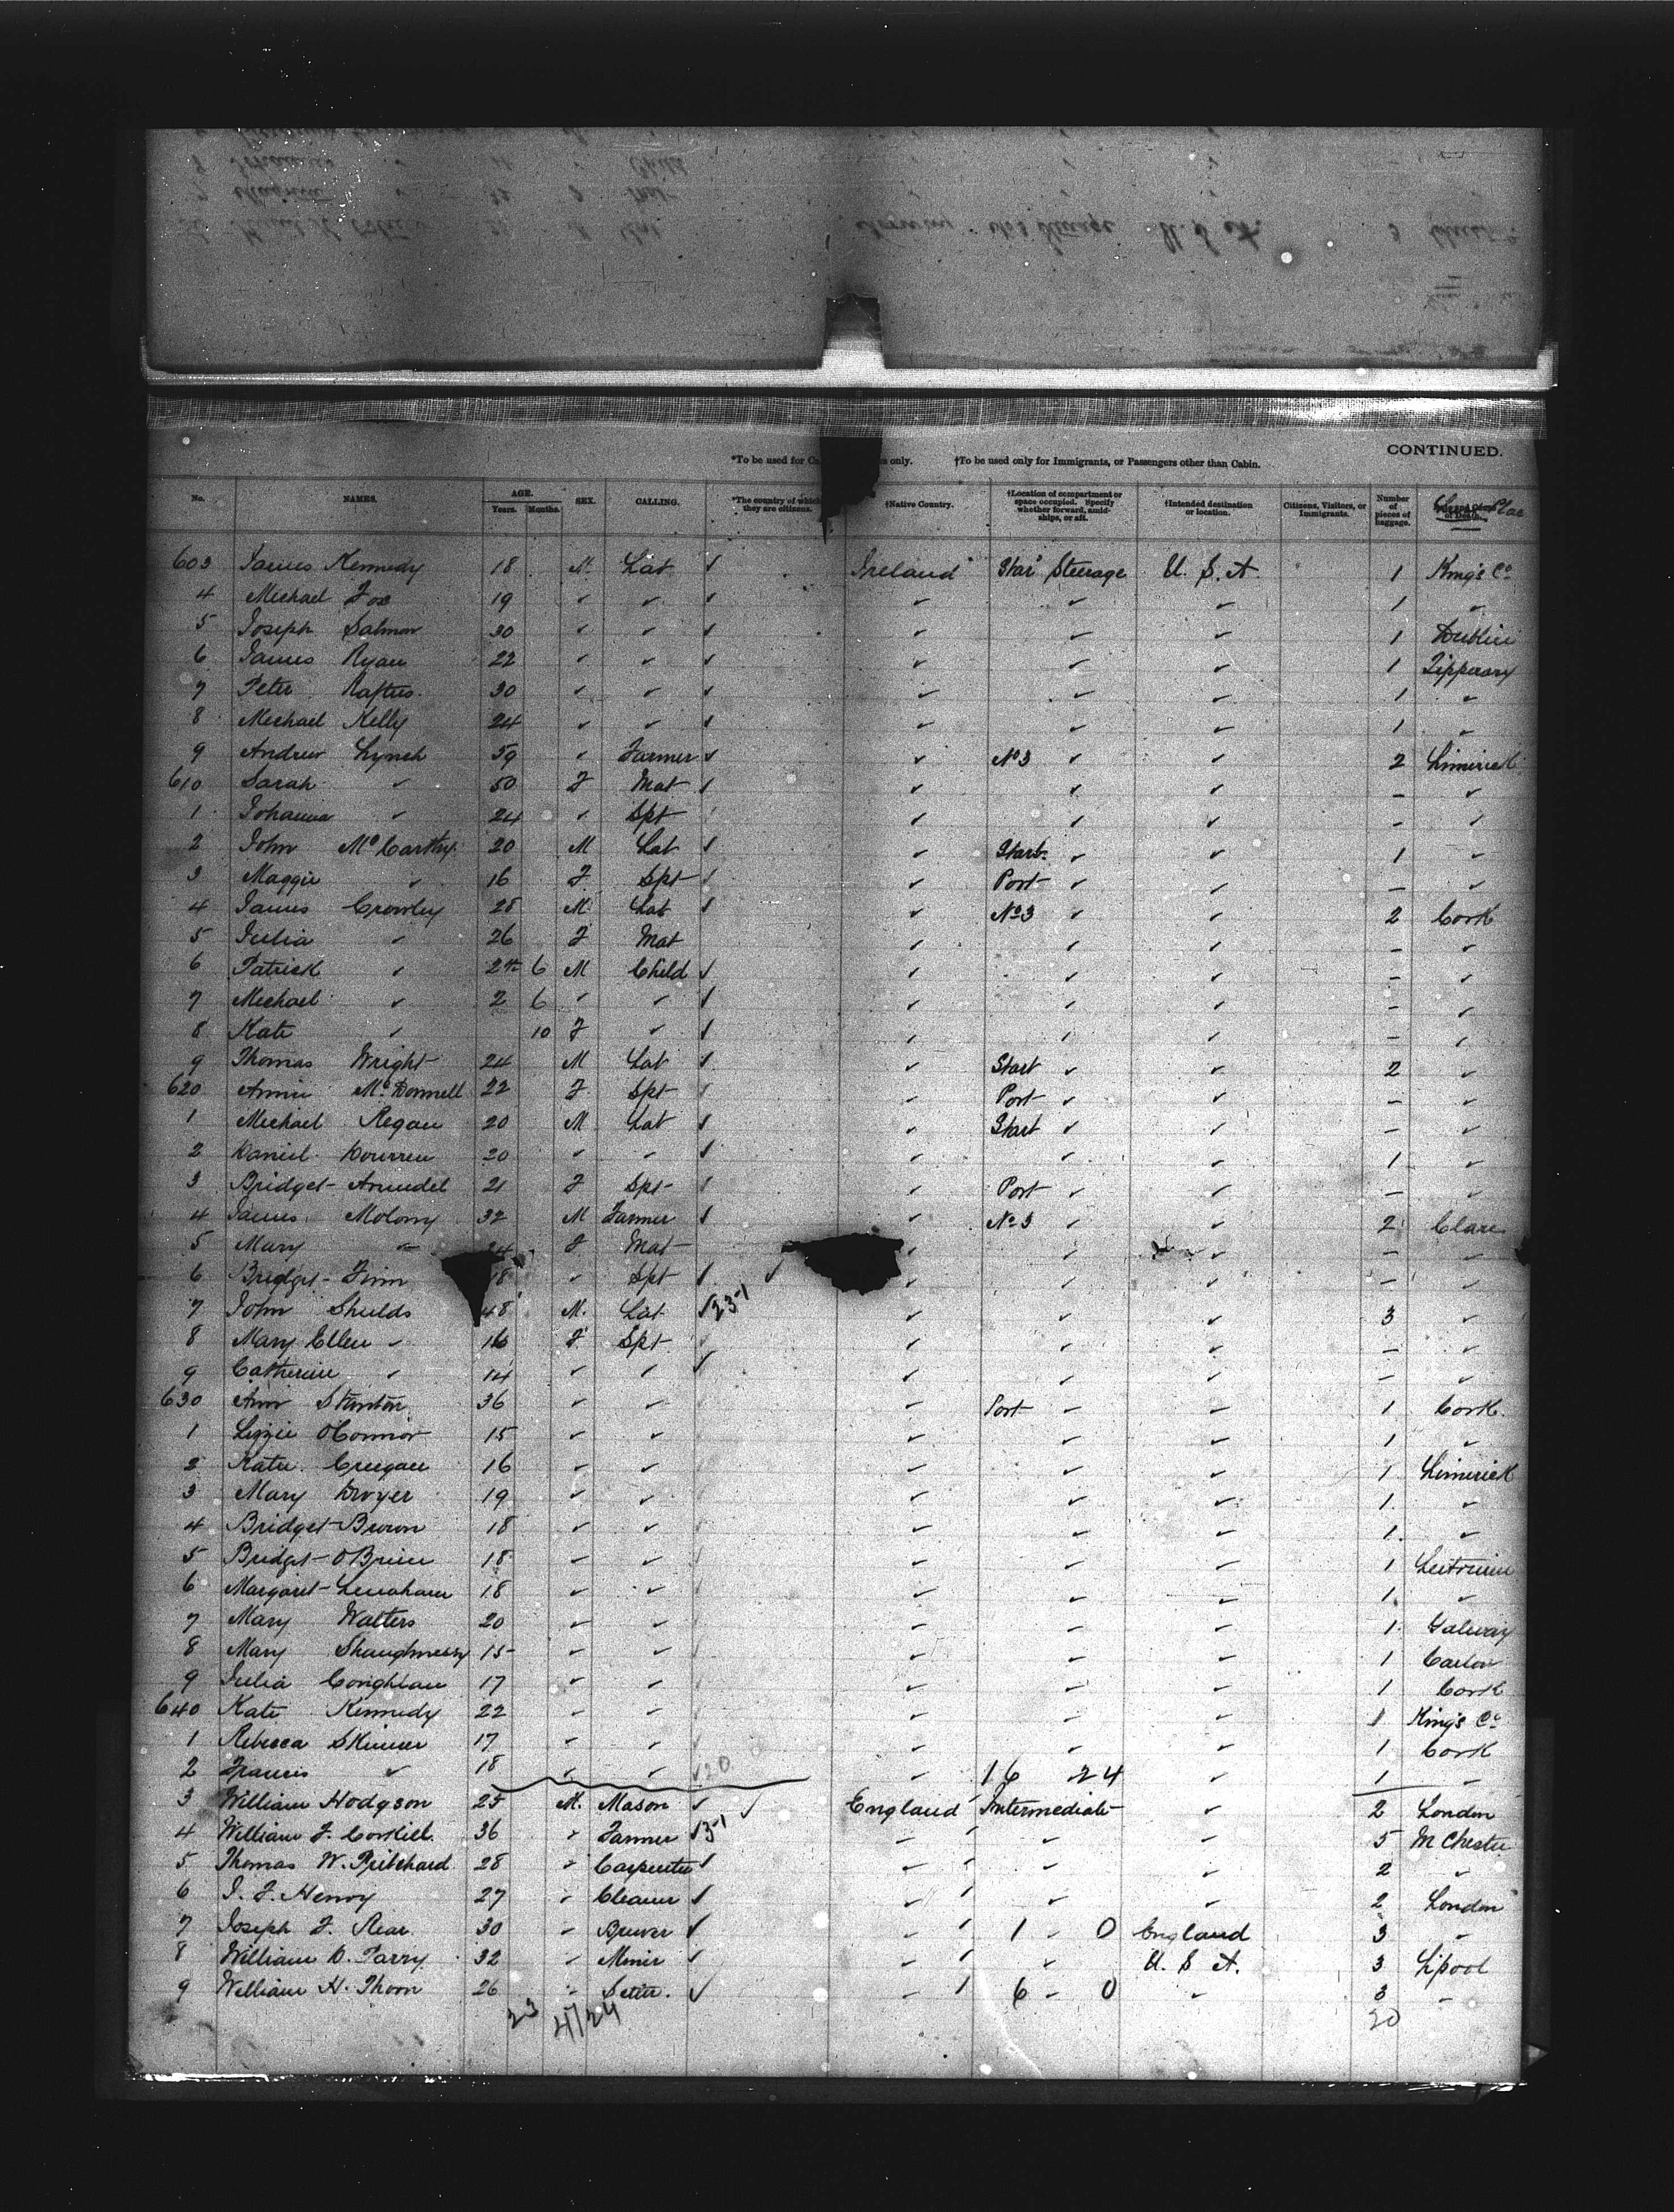 CONTINUED.
*To be used for only. †To be used only for Immigrants, or Passengers other than Cabin.
No. NAMES. AGE. Years. Months. SEX. CALLING. *The country of which they are citizens. †Native Country. †Location of compartment or space occupied. Specify whether forward, amidships, or aft. †Intended destination or location. Citizens, Visitors, or Immigrants. Number of pieces of baggage.
603 James Kennedy 18 M. Lab ✓ Ireland Star' Steerage U. S. A. 1 King's Co
4 Michael Fox 19 ✓ ✓ ✓ ✓ ✓ ✓ 1 ✓
5 Joseph Salmon 30 ✓ ✓ ✓ ✓ ✓ ✓ 1 Dublin
6 James Ryan 22 ✓ ✓ ✓ ✓ ✓ ✓ 1 Tipperary
7 Peter Rafters 30 ✓ ✓ ✓ ✓ ✓ ✓ 1 ✓
8 Michael Kelly 24 ✓ ✓ ✓ ✓ ✓ ✓ 1 ✓
9 Andrew Lynch 59 ✓ Farmer ✓ ✓ No3 ✓ ✓ 2 Limerick
610 Sarah ✓ 50 F Mat ✓ ✓ ✓ ✓ – ✓
1 Johanna ✓ 24 ✓ Spt ✓ ✓ ✓ – ✓
2 John McCarthy 20 M Lab ✓ ✓ Starb. ✓ ✓ 1 ✓
3 Maggie ✓ 16 F Spt ✓ ✓ Port ✓ ✓ – ✓
4 James Crowley 28 M Lab ✓ ✓ No3 ✓ ✓ 2 Cork
5 Julia ✓ 26 F Mat ✓ ✓ ✓ – ✓
6 Patrick ✓ 6 M Child ✓ ✓ ✓ ✓ – ✓
7 Michael ✓ 2 6 ✓ ✓ ✓ ✓ ✓ ✓ – ✓
8 Kate ✓ 10 F ✓ ✓ ✓ ✓ ✓ – ✓
9 Thomas Wright 24 M Lab ✓ ✓ Starb ✓ ✓ 2 ✓
620 Annie McDonnell 22 F Spt ✓ ✓ Port ✓ ✓ – ✓
1 Michael Regan 20 M Lab ✓ ✓ Starb ✓ ✓ – ✓
2 Daniel 20 ✓ ✓ ✓ ✓ ✓ ✓ 1 ✓
3 Bridget Arundel 21 F Spt ✓ ✓ Port ✓ ✓ – ✓
4 James Molony 32 M Farmer ✓ ✓ No3 ✓ ✓ 2 Clare
5 Mary ✓ 24 F Mat ✓ ✓ ✓ – ✓
6 Bridget Finn 18 ✓ Spt ✓ ✓ ✓ ✓ ✓ – ✓
7 John Shields 48 M. Lab ✓ 23-1 ✓ ✓ ✓ 3 ✓
8 Mary Ellen ✓ 16 F Spt ✓ ✓ ✓ ✓ – ✓
9 Catherine ✓ 14 ✓ ✓ ✓ ✓ ✓ ✓ – ✓
630 Ann Stanton 36 ✓ ✓ ✓ Port ✓ ✓ 1 Cork
1 Lizzie O'Connor 15 ✓ ✓ ✓ ✓ ✓ 1 ✓
2 Katie Creegan 16 ✓ ✓ ✓ ✓ ✓ 1 Limerick
3 Mary Dwyer 19 ✓ ✓ ✓ ✓ ✓ 1 ✓
4 Bridget Brown 18 ✓ ✓ ✓ ✓ ✓ 1 ✓
5 Bridget O'Brien 18 ✓ ✓ ✓ ✓ ✓ 1 Leitrim
6 Margaret Lenaham 18 ✓ ✓ ✓ ✓ ✓ 1 ✓
7 Mary Walters 20 ✓ ✓ ✓ ✓ ✓ 1 Galway
8 Mary Shaughnessy 15 ✓ ✓ ✓ ✓ ✓ 1 Carlow
9 Julia Coughlan 17 ✓ ✓ ✓ ✓ ✓ 1 Cork
640 Kate Kennedy 22 ✓ ✓ ✓ ✓ ✓ 1 King's Co
1 Rebecca Skinner 17 ✓ ✓ ✓ ✓ ✓ 1 Cork
2 Frances ✓ 18 ✓ ✓ ✓ 20 ✓ 16 24 ✓ 1 ✓
3 William Hodgson 25 M. Mason ✓ ✓ England Intermediate ✓ 2 London
4 William J. Corkill 36 ✓ Farmer ✓ 3-1 ✓ ✓ ✓ 5 M Chester
5 Thomas W. Pritchard 28 ✓ Carpenter ✓ ✓ ✓ ✓ 2 ✓
6 J. J. Henry 27 ✓ Cleaner ✓ ✓ ✓ ✓ 2 London
7 Joseph J. Rear 30 ✓ Brewer ✓ ✓ 1 – 0 England 3 ✓
8 William D. Parry 32 ✓ Miner ✓ ✓ ✓ U. S. A. 3 L'pool
9 William H. Thorn 26 ✓ ✓ ✓ 6 – 0 ✓ 3 ✓
23 41/24 20